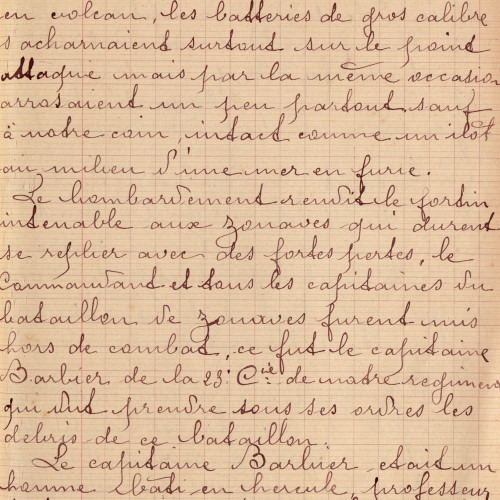 en volcan, les batteries de gros calibre
s'acharnaient surtout sur le point
attaqué mais par la même occasion
arrosaient un peu partout sauf
à notre coin, intact comme un ilôt
au milieu d'une mer en furie.
Le bombardement rendit le fortin
intenable aux zouaves qui durent
se replier avec des fortes pertes, le
Commandant et tous les capitaines du
bataillon de zouaves furent mis
hors de combat, ce fut le capitaine
Barbier de la 23e Cie de notre regimen
qui dut prendre sous ses ordres les
debris de ce bataillon.
Le capitaine Barbier etait un
homme bâti en hercule, professeur